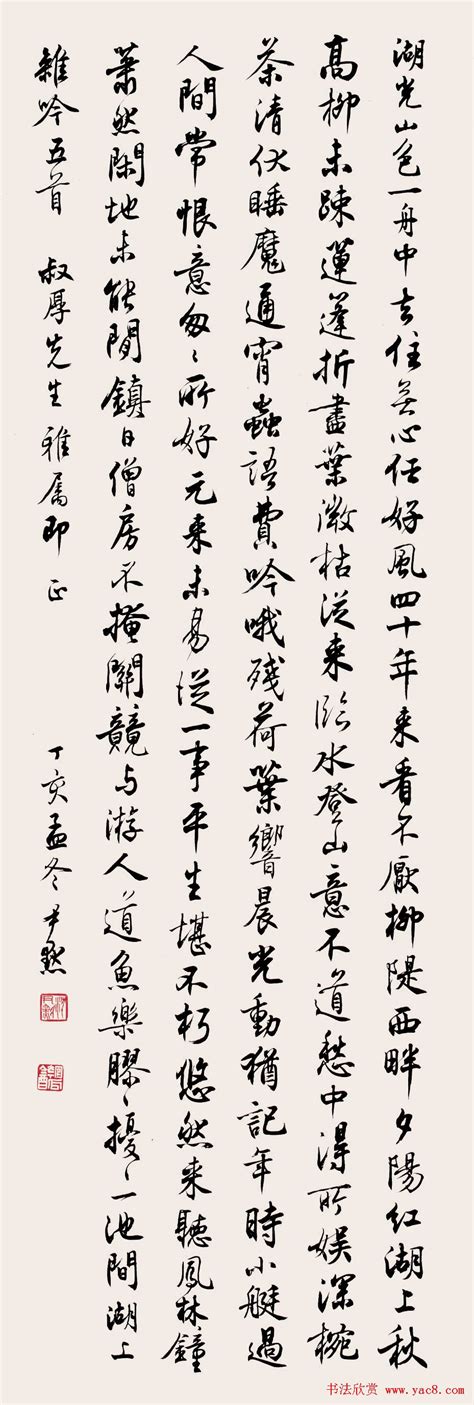 湖光山色一舟中去住無心任好風四十年来看不厭柳隄西畔夕陽红湖上秋
高柳未疎蓮蓬折盡葉澂枯从来临水登山意不道愁中得所娱深椀
茶清伏睡魔通宵蟲語費吟哦殘荷葉響晨光動猶記年時小艇過
人間常恨意匆〻所好元来未易從一事平生堪不朽悠然来聽鳳林鐘
蕭然閑地未能閒鎮日僧房不掩關競与游人道魚樂膠〻擾〻一池間湖上
雜吟五首 叔厚先生雅屬即正 丁亥孟冬尹默
书法欣赏 www.yac8.com